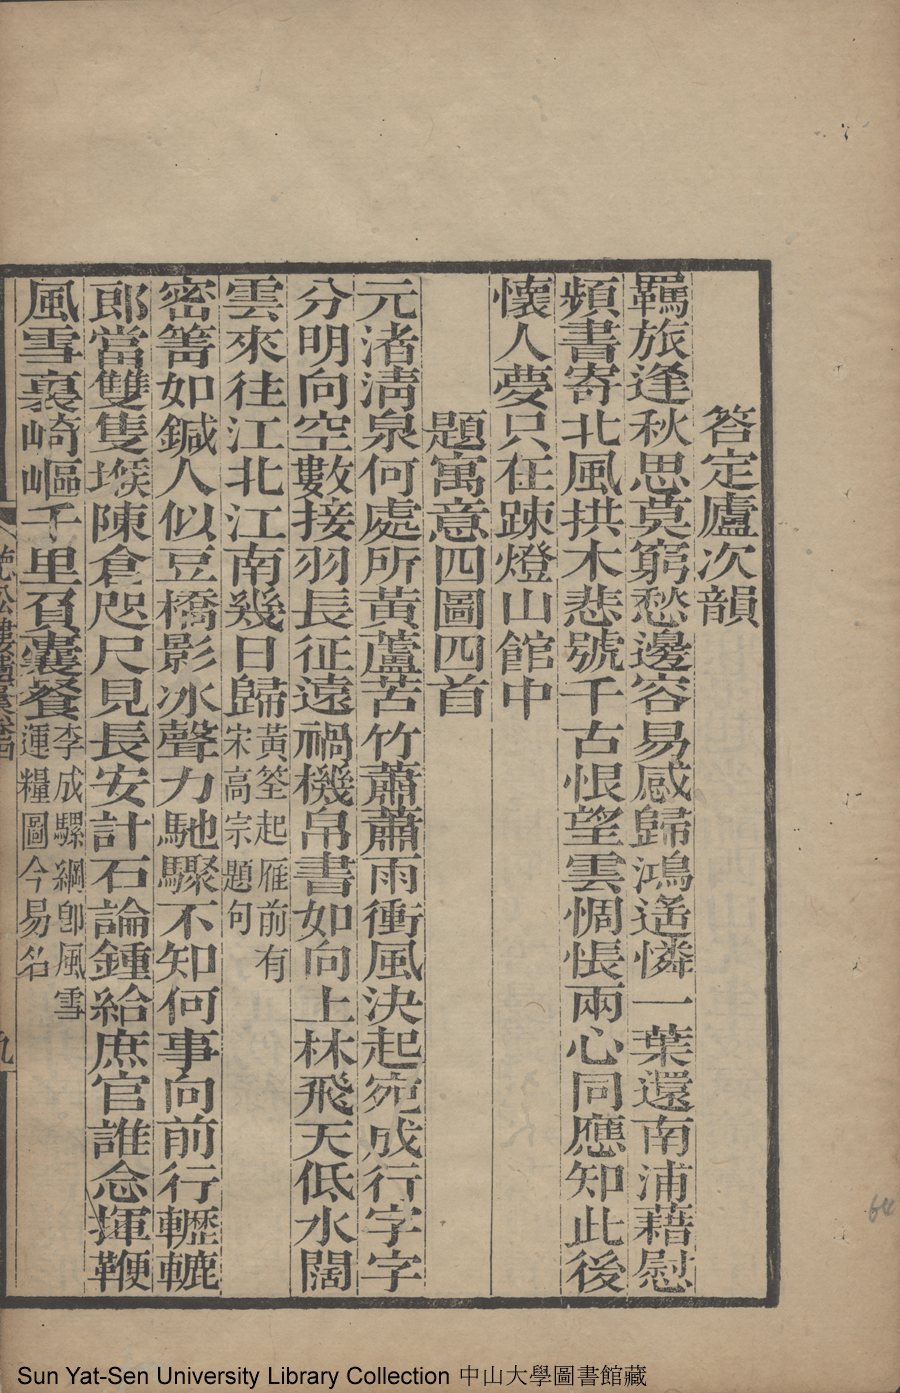 答定廬次韻
羈旅逢秋思莫窮愁邊容易感歸鴻遙憐一葉還南浦藉慰
頻書寄北風拱木悲號千古恨望雲惆悵兩心同應知此後
懷人夢只在疎燈山館中
題寓意四圖四首
元渚淸泉何處所黃蘆苦竹蕭蕭雨衝風決起宛成行字字
分明向空數接羽長征遠禍機帛書如向上林飛天低水闊
雲來往江北江南幾日歸黃筌起雁前有
宋高宗題句
密篙如鍼人似豆橋影冰聲力馳驟不知何事向前行轣轆
郎當雙隻堠陳倉咫尺見長安計石論鍾給庶官誰念揮鞭
風雪裏崎嶇千里負囊餐李成騾綱卽風雪
運糧圖今易名
九
Sun Yat-Sen University Library Collection 中山大學圖書館藏
64